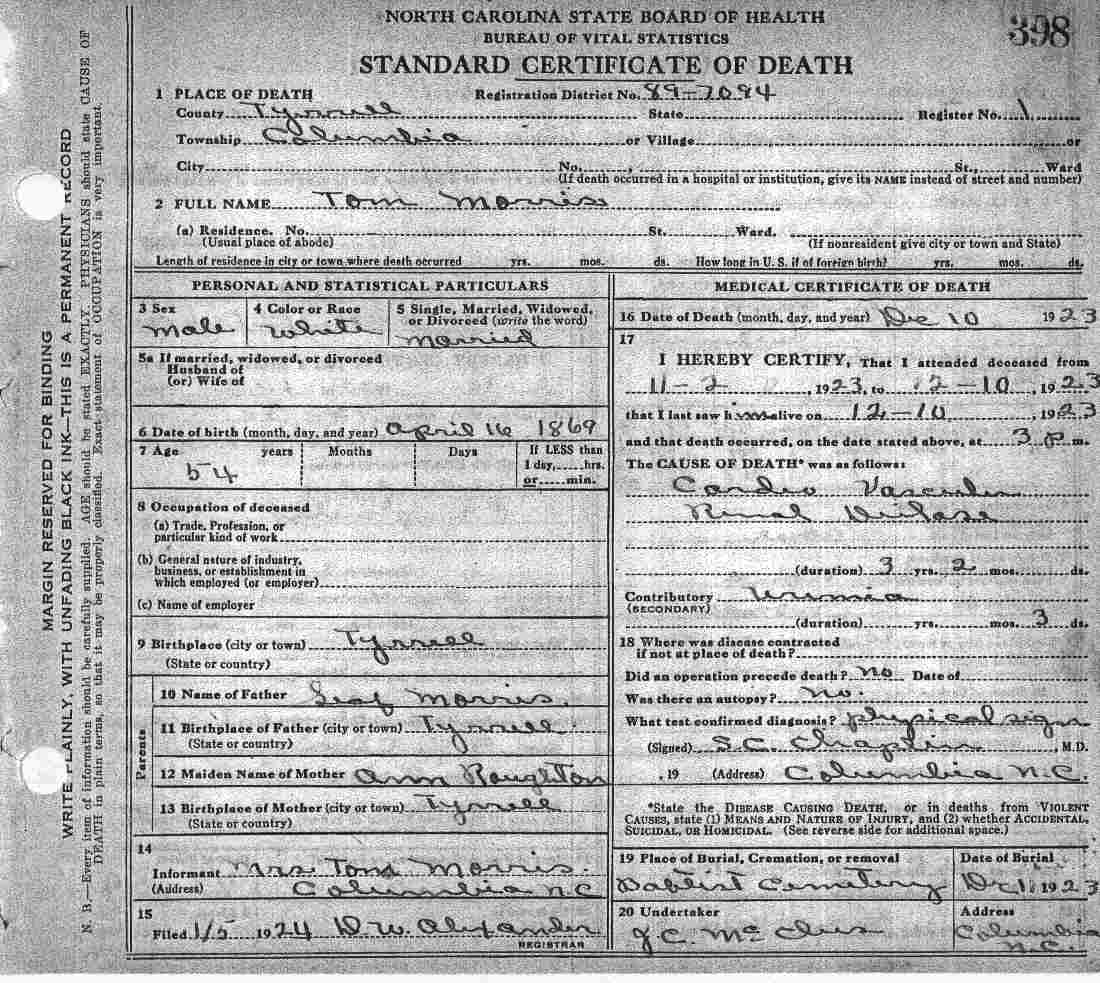 NORTH CAROLINA STATE BOARD OF HEALTH
BUREAU OF VITAL STATISTICS
398
STANDARD CERTIFICATE OF DEATH
1 PLACE OF DEATH Registration District No. 89-7094
County Tyrrell State Register No. 1
Township Columbia or Village or
City No. , St., Ward
(If death occurred in a hospital or institution, give its NAME instead of street and number)
2 FULL NAME Tom Morris
(a) Residence. No. St. Ward.
(Usual place of abode) (If nonresident give city or town and State)
Length of residence in city or town where death occurred yrs. mos. ds. How long in U. S. if of foreign birth? yrs. mos. ds.
PERSONAL AND STATISTICAL PARTICULARS
3 Sex
Male
4 Color or Race
White
5 Single, Married, Widowed,
or Divorced (write the word)
Married
5a If married, widowed, or divorced
Husband of
(or) Wife of
6 Date of birth (month, day, and year) April 16 1869
7 Age years Months Days If LESS than
54 1 day, hrs.
or min.
8 Occupation of deceased
(a) Trade, Profession, or
particular kind of work
(b) General nature of industry,
business, or establishment in
which employed (or employer)
(c) Name of employer
9 Birthplace (city or town) Tyrrell
(State or country)
Parents
10 Name of Father Morris
11 Birthplace of Father (city or town) Tyrrell
(State or country)
12 Maiden Name of Mother Ann Roughton
13 Birthplace of Mother (city or town) Tyrrell
(State or country)
14
Informant Mrs. Tom Morris.
(Address) Columbia N C
15
Filed 1/5 1924 D. W. Alexander
REGISTRAR
MEDICAL CERTIFICATE OF DEATH
16 Date of Death (month, day, and year) Dec 10 1923
17
I HEREBY CERTIFY, That I attended deceased from
11-2 , 1923, to 12-10 , 1923
that I last saw him alive on 12-10 , 1923
and that death occurred, on the date stated above, at 3 P m.
The CAUSE OF DEATH* was as follows:
Cardio Vascular
Renal Disease
(duration) 3 yrs. 2 mos. ds.
Contributory Uremia
(SECONDARY)
(duration) yrs. mos. 3 ds.
18 Where was disease contracted
if not at place of death?
Did an operation precede death? No Date of
Was there an autopsy? No.
What test confirmed diagnosis? physical sign
(Signed) S. C. Chaplin , M.D.
, 19 (Address) Columbia N.C.
*State the DISEASE CAUSING DEATH, or in deaths from VIOLENT
CAUSES, state (1) MEANS AND NATURE OF INJURY, and (2) whether ACCIDENTAL,
SUICIDAL, OR HOMICIDAL. (See reverse side for additional space.)
19 Place of Burial, Cremation, or removal Date of Burial
Baptist Cemetery 1923
20 Undertaker Address
J. C. Columbia
N.C.
MARGIN RESERVED FOR BINDING
WRITE PLAINLY, WITH UNFADING BLACK INK—THIS IS A PERMANENT RECORD
N. B.—Every item of information should be carefully supplied. AGE should be stated EXACTLY. PHYSICIANS should state CAUSE OF
DEATH in plain terms, so that it may be properly classified. Exact statement of OCCUPATION is very important.